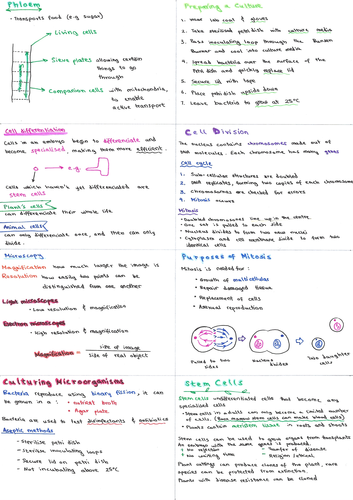 Phloem
- Transports food (e.g sugar)
Living cells
Sieve plates allowing certain
things to go
through
Companion cells with mitochondria,
to enable
active transport
Preparing a Culture
1. Wear lab coat & gloves
2. Take sterilised petri dish with culture media
3. Pass inoculating loop through the Bunsen
Burner and cool into culture media
4. Spread bacteria over the surface of the
Petri dish and quickly replace lid
5. Secure lid with tape
6. Place petri dish upside down
7. Leave bacteria to grow at 25°C
Cell differentiation
Cells in an embryo begin to differentiate and
become specialised, making them more efficient.
e.g
Cells which haven't yet differentiated are
stem cells
Plant's cells
can differentiate their whole life.
Animal cells
can only differentiate once, and then can only
divide.
Cell Division
The nucleus contains chromosomes made out of
DNA molecules. Each chromosome has many genes
Cell cycle
1. Sub-cellular structures are doubled
2. DNA replicates, forming two copies of each chromosome
3. Chromosomes are checked for errors
4. Mitosis occurs
Mitosis
• Doubled chromosomes line up in the centre
• One set is pulled to each side
• Nucleus divides to form two new nuclei
• Cytoplasm and cell membrane divide to form two
identical cells
Microscopy
Magnification: how much larger the image is
Resolution: how easily two points can be
distinguished from one another
Light microscopes
- Low resolution & magnification
Electron microscopes
- High resolution & magnification
Magnification = size of image
size of real object
Purposes of Mitosis
Mitosis is needed for:
• Growth of multicellular
• Repair damaged tissue
• Replacement of cells
• Asexual reproduction
Pulled to two
sides
Nucleus
divides
Two daughter
cells
Culturing Microorganisms
Bacteria reproduce using binary fission, it can
be grown in a: • nutrient broth
• Agar plate
Bacteria are used to test disinfectants & antibiotics
Aseptic methods
- Sterilise petri dish
- Sterilise inoculating loops
- Secure lid on petri dish
- Not incubating above 25°C
Stem Cells
Stem cells - undifferentiated cells that become any
specialised cells
• Stem cells in adults can only become a limited number
of cells
• Plants contain meristem tissue in roots and shoots
Stem cells can be used to grow organs from transplants
An embryo with the same genes is produced.
↑ No rejection
↑ No waiting time
↓ Transfer of disease
Plant cutting can produce clones of the plant, rare
species can be protected from extinction
Plants with disease resistance can be cloned